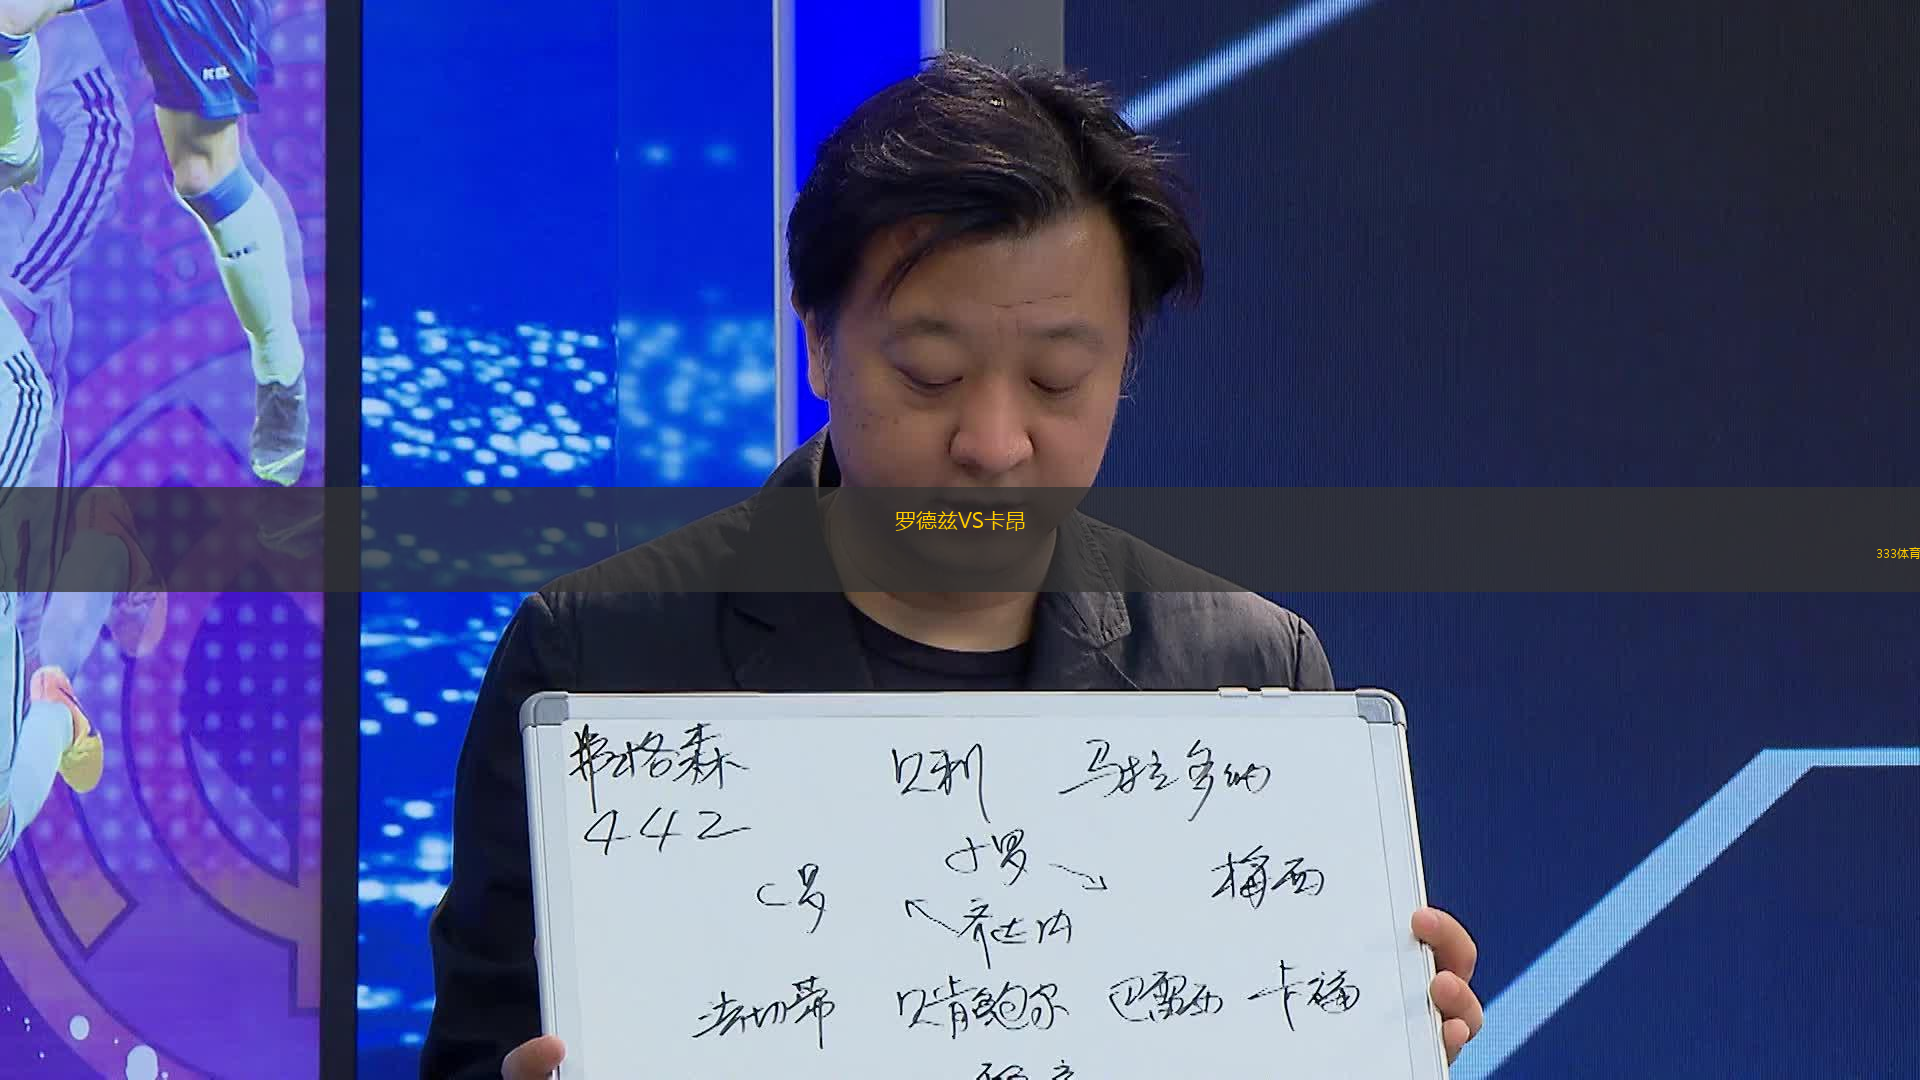 KEL
罗德兹VS卡昂
333体育
弗格森 贝利 马拉多纳
442
小罗
C罗 梅西
齐达内
法切蒂 贝肯鲍尔 巴雷西 卡福